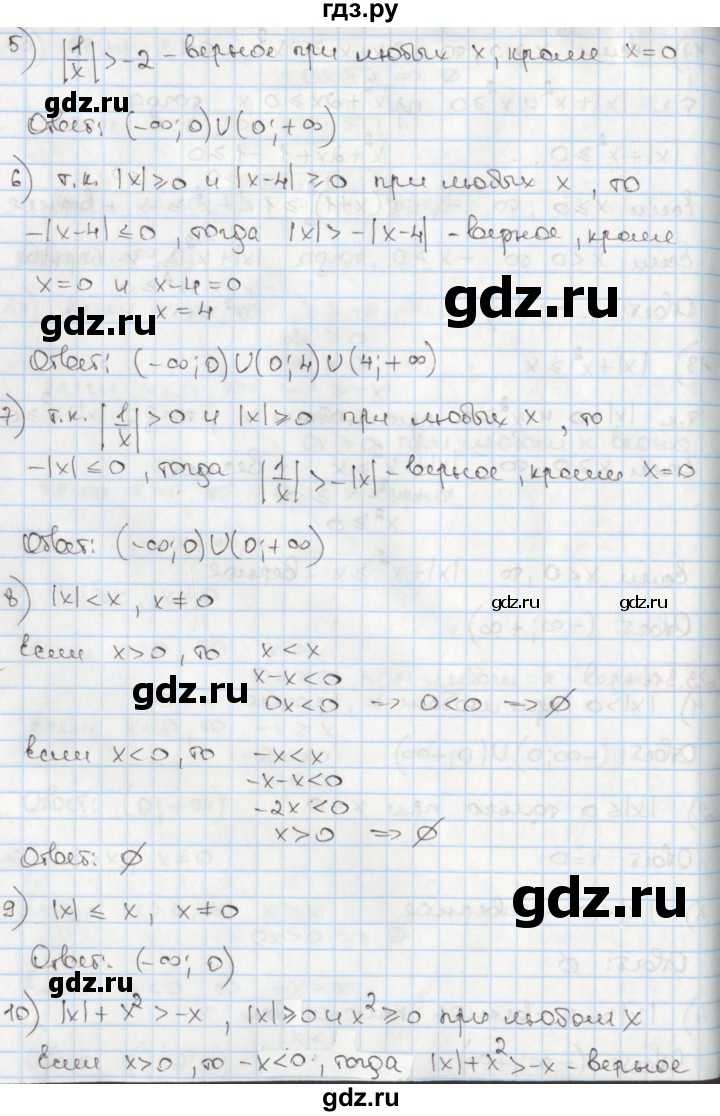 гдз.ру
5) |1/x| > -2 - верное при любых x, кроме x=0
gdz.ru
Ответ: (-∞; 0)∪(0; +∞)
6) т.к. |x| ⩾ 0 и |x-4| ⩾ 0 при любых x, то
-|x-4| ≤ 0, тогда |x| > -|x-4| - верное, кроме
x=0 и x-4=0
gdz.ru
x=4
gdz.ru
Ответ: (-∞; 0)∪(0; 4)∪(4; +∞)
7) т.к. |1/x| > 0 и |x| ⩾ 0 при любых x, то
-|x| ≤ 0, тогда |1/x| > -|x| - верное, кроме x=0
gdz.ru
Ответ: (-∞; 0)∪(0; +∞)
8) |x| < x, x ≠ 0
gdz.ru gdz.ru
если x>0, то x < x
x-x<0
gdz.ru
0x<0 => 0<0 => ∅
если x<0, то -x<x
-x-x<0
-2x<0
x>0 => ∅
gdz.ru
Ответ: ∅
9) |x| ≤ x, x ≠ 0
gdz.ru
Ответ: (-∞; 0)
10) |x| + x² > -x, |x| ⩾ 0 и x² ⩾ 0 при любом x
если x>0, то -x<0, тогда |x|+x² > -x - верное
gdz.ru